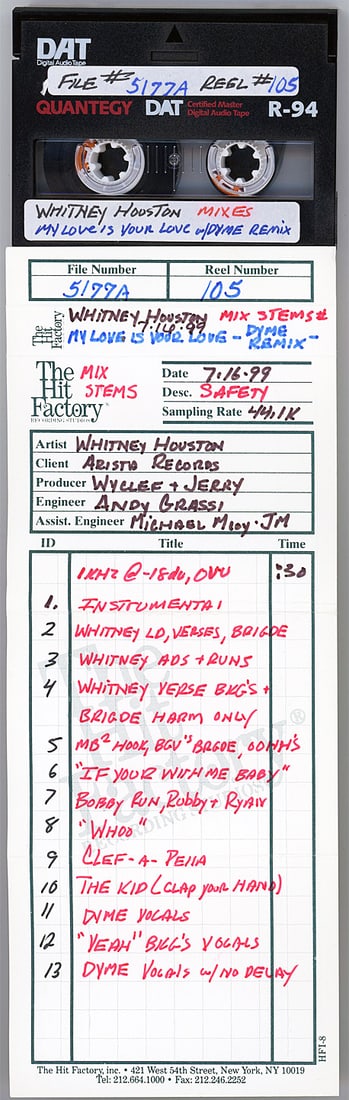 DAT
Digital Audio Tape
FILE # 5177A REEL # 105
QUANTEGY DAT Certified Master Digital Audio Tape R-94
WHITNEY HOUSTON MIXES
MY LOVE IS YOUR LOVE w/DYME REMIX
File Number Reel Number
5177A 105
The Hit Factory
WHITNEY HOUSTON MIX STEMS
7.16.99
MY LOVE IS YOUR LOVE - DYME REMIX -
The Hit Factory
RECORDING STUDIOS
MIX STEMS
Date 7.16.99
Desc. SAFETY
Sampling Rate 44.1K
Artist WHITNEY HOUSTON
Client ARISTA RECORDS
Producer WYCLEF + JERRY
Engineer ANDY GRASSI
Assist. Engineer MICHAEL JM
ID Title Time
1KHZ @ -18db, 0VU :30
1. INSTRUMENTAL
2 WHITNEY LD, VERSES, BRIGDE
3 WHITNEY ADS + RUNS
4 WHITNEY VERSE BKG'S +
BRIGDE HARM ONLY
5 MB² HOOK, BGV'S BRGDE, OOHH'S
6 "IF YOUR WITH ME BABY"
7 BOBBY RUN, RUBBY + RYAN
8 "WHOO"
9 CLEF-A-PELLA
10 THE KID (CLAP YOUR HAND)
11 DYME VOCALS
12 "YEAH" BKG'S VOCALS
13 DYME VOCALS w/ NO DELAY
The Hit Factory ®
RECORDING STUDIOS
HFI-8
The Hit Factory, inc. • 421 West 54th Street, New York, NY 10019
Tel: 212.664.1000 • Fax: 212.246.2252